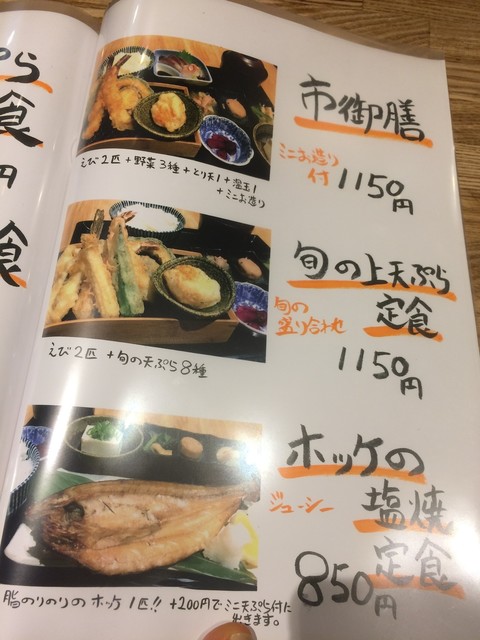 ぷら
食
円
食
市御膳
ミニお造り
付
1150円
えび2匹+野菜3種+とり天1+温玉1
+ミニお造り
旬の上天ぷら
定食
旬の
盛り合わせ
1150円
えび2匹 +旬の天ぷら8種
ホッケの
塩焼
定食
ジューシー
850円
脂のりのりのホッケ1匹!! +200円でミニ天ぷら付に
出きます。